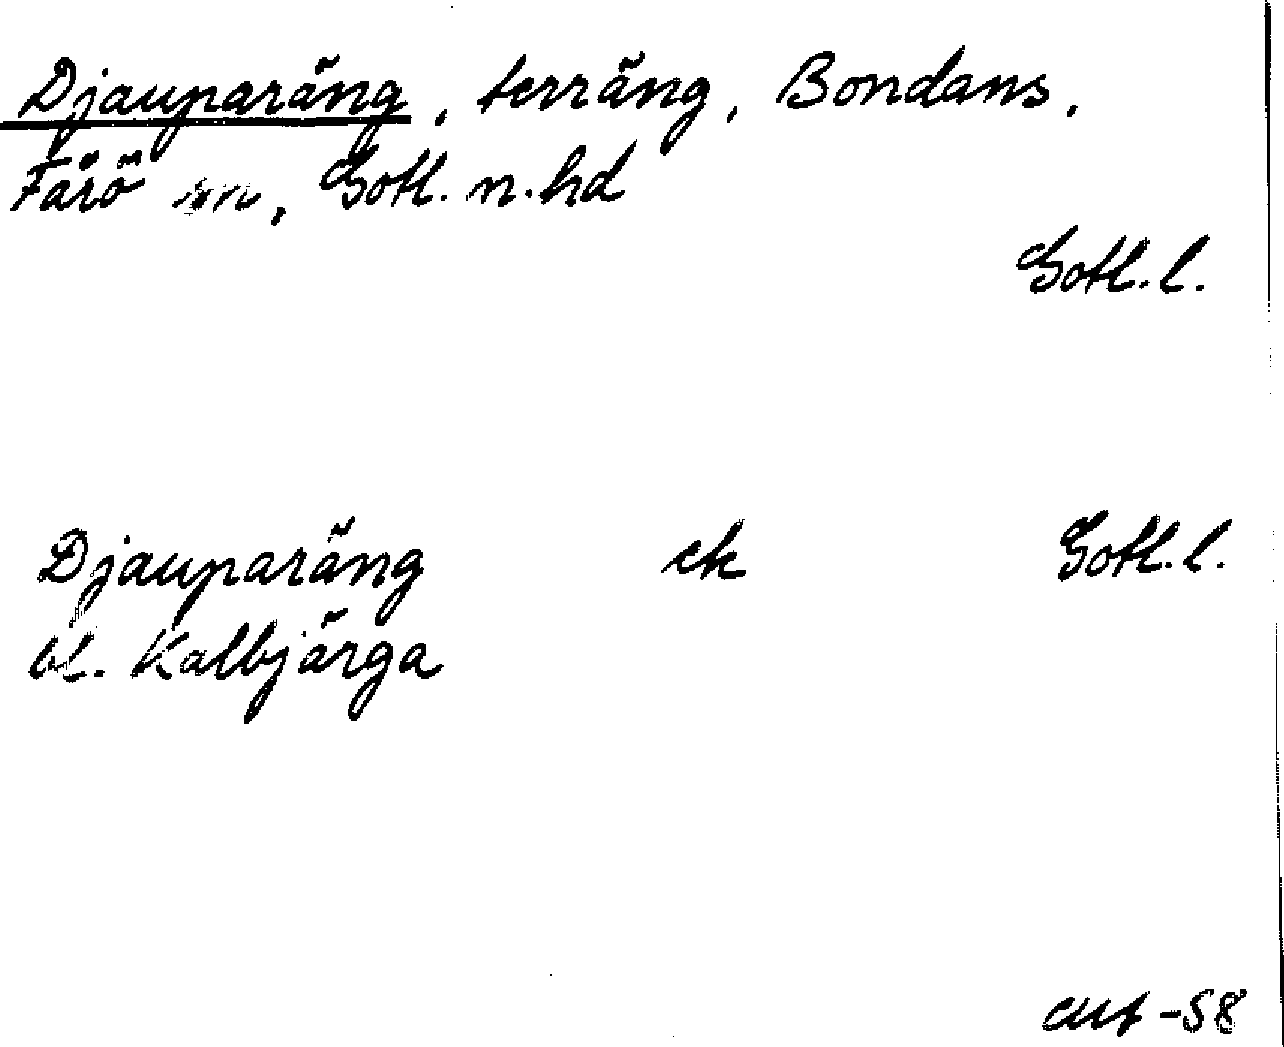 Djauparäng, terräng, Bondans,
Fårö sn, Gotl. n. hd
Gotl. l.
Djauparäng ek Gotl. l.
bl. Kalbjärga